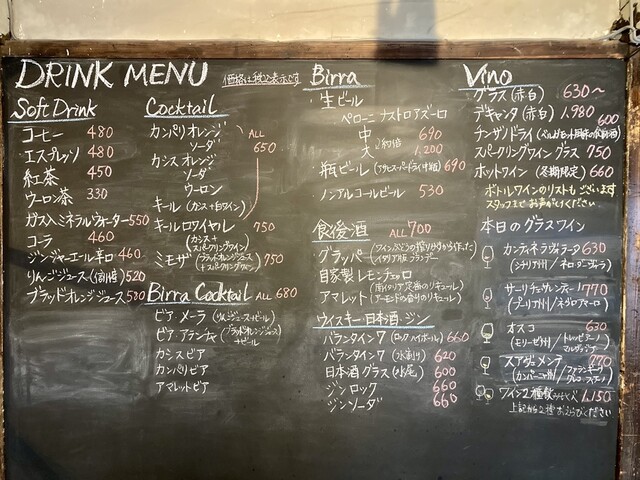 DRINK MENU 価格は税込表示です
Soft Drink
コーヒー 480
エスプレッソ 480
紅茶 450
ウーロン茶 330
ガス入ミネラルウォーター 550
コーラ 460
ジンジャーエール辛口 460
りんごジュース(信州) 520
ブラッドオレンジジュース 580
Cocktail
カンパリオレンジ
ソーダ
カシスオレンジ
ソーダ
ウーロン
キール(カシス+白ワイン)
ALL 650
キールロワイヤル 750
(カシス+スパークリングワイン)
ミモザ (ブラッドオレンジジュース+スパークリングワイン) 750
Birra Cocktail ALL 680
ビア・メーラ (りんごジュース+ビール)
ビア・アランチャ (ブラッドオレンジジュース+ビール)
カシスビア
カンパリビア
アマレットビア
Birra
生ビール
ペローニ ナストロアズーロ
中 690
大 1,200
瓶ビール 690
ノンアルコールビール 530
食後酒 ALL 700
グラッパ (ワイン用ぶどうの搾りかすから作ったイタリア版ブランデー)
自家製レモンチェッロ
アマレット (アーモンドの香りのリキュール)
ウイスキー・日本酒・ジン
バランタイン7 (ロック・ハイボール) 660
バランタイン7 (水割り) 620
日本酒グラス (水尾) 600
ジンロック 660
ジンソーダ 660
Vino
グラス(赤白) 630〜
デキャンタ(赤白) 1,980
チンザノドライ 600
スパークリングワイングラス 750
ホットワイン (冬期限定) 660
ボトルワインのリストもございます
スタッフまでお声がけください
本日のグラスワイン
カンティネラヴォラータ 630
(シチリア州/ネロダヴォラ)
サーリチェサレンティーノ 770
(プーリア州/ネグロアマーロ)
オスコ 630
(モリーゼ州/トレッビアーノ マルヴァジア)
770
(カンパーニャ州/ファランギーナ
ワイン2種飲みくらべ 1,150
上記から2種おえらびください